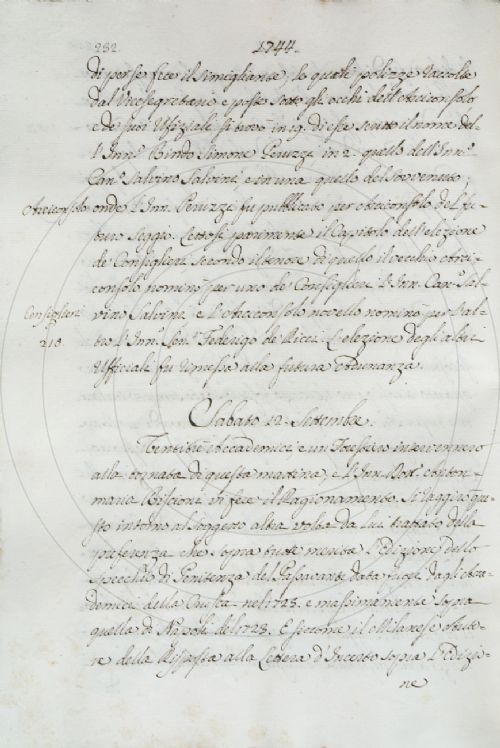 232.
1744.
di per se fece il simigliante, le quali polizze raccolte
dal Vicesegretario e poste sotto gli occhi dell'Arciconsolo
e de suoi Ufiziali si trovò in 19. di esse scritto il nome del-
l'Inn.º Bindo Simone Peruzzi in 2. quello dell'Inn.º
Can.º Salvino Salvini, e in una quello del Sovvenuto;
Arciconsolo
onde l'Inn. Peruzzi fu pubblicato per Arciconsolo del fu-
turo seggio. Lettosi parimente il Capitolo dell'elezione
de' Consiglieri secondo il tenore di quello il vecchio Arci-
consolo nominò per uno de' Consiglieri l'Inn. Can.º Sal-
Consiglieri
218.
vino Salvini, e l'Arciconsolo novello nominò per l'al-
tro l'Inn.º Sen.º Federigo de Ricci. L'elezione degli altri
Ufficiali fu rimessa alla futura Adunanza.
Sabato 12. Settembre.
Accademici e un Forestiero intervennero
alla tornata di questa mattina, e l'Inn. Dott.º Anton-
maria Biscioni vi fece il Ragionamento. Si aggirò que-
sto intorno al Soggetto altra volta da lui trattato della
preferenza che sopra tutte merita l'Edizione dello
Specchio di Penitenza del Passavanti data fuori dagli Acca-
demici della Crusca nel 1725. e massimamente sopra
quella di Napoli del 1723. E siccome il Milanese Auto-
re della Risposta alla Lettera d'Incerto sopra l'Edizio-
ne